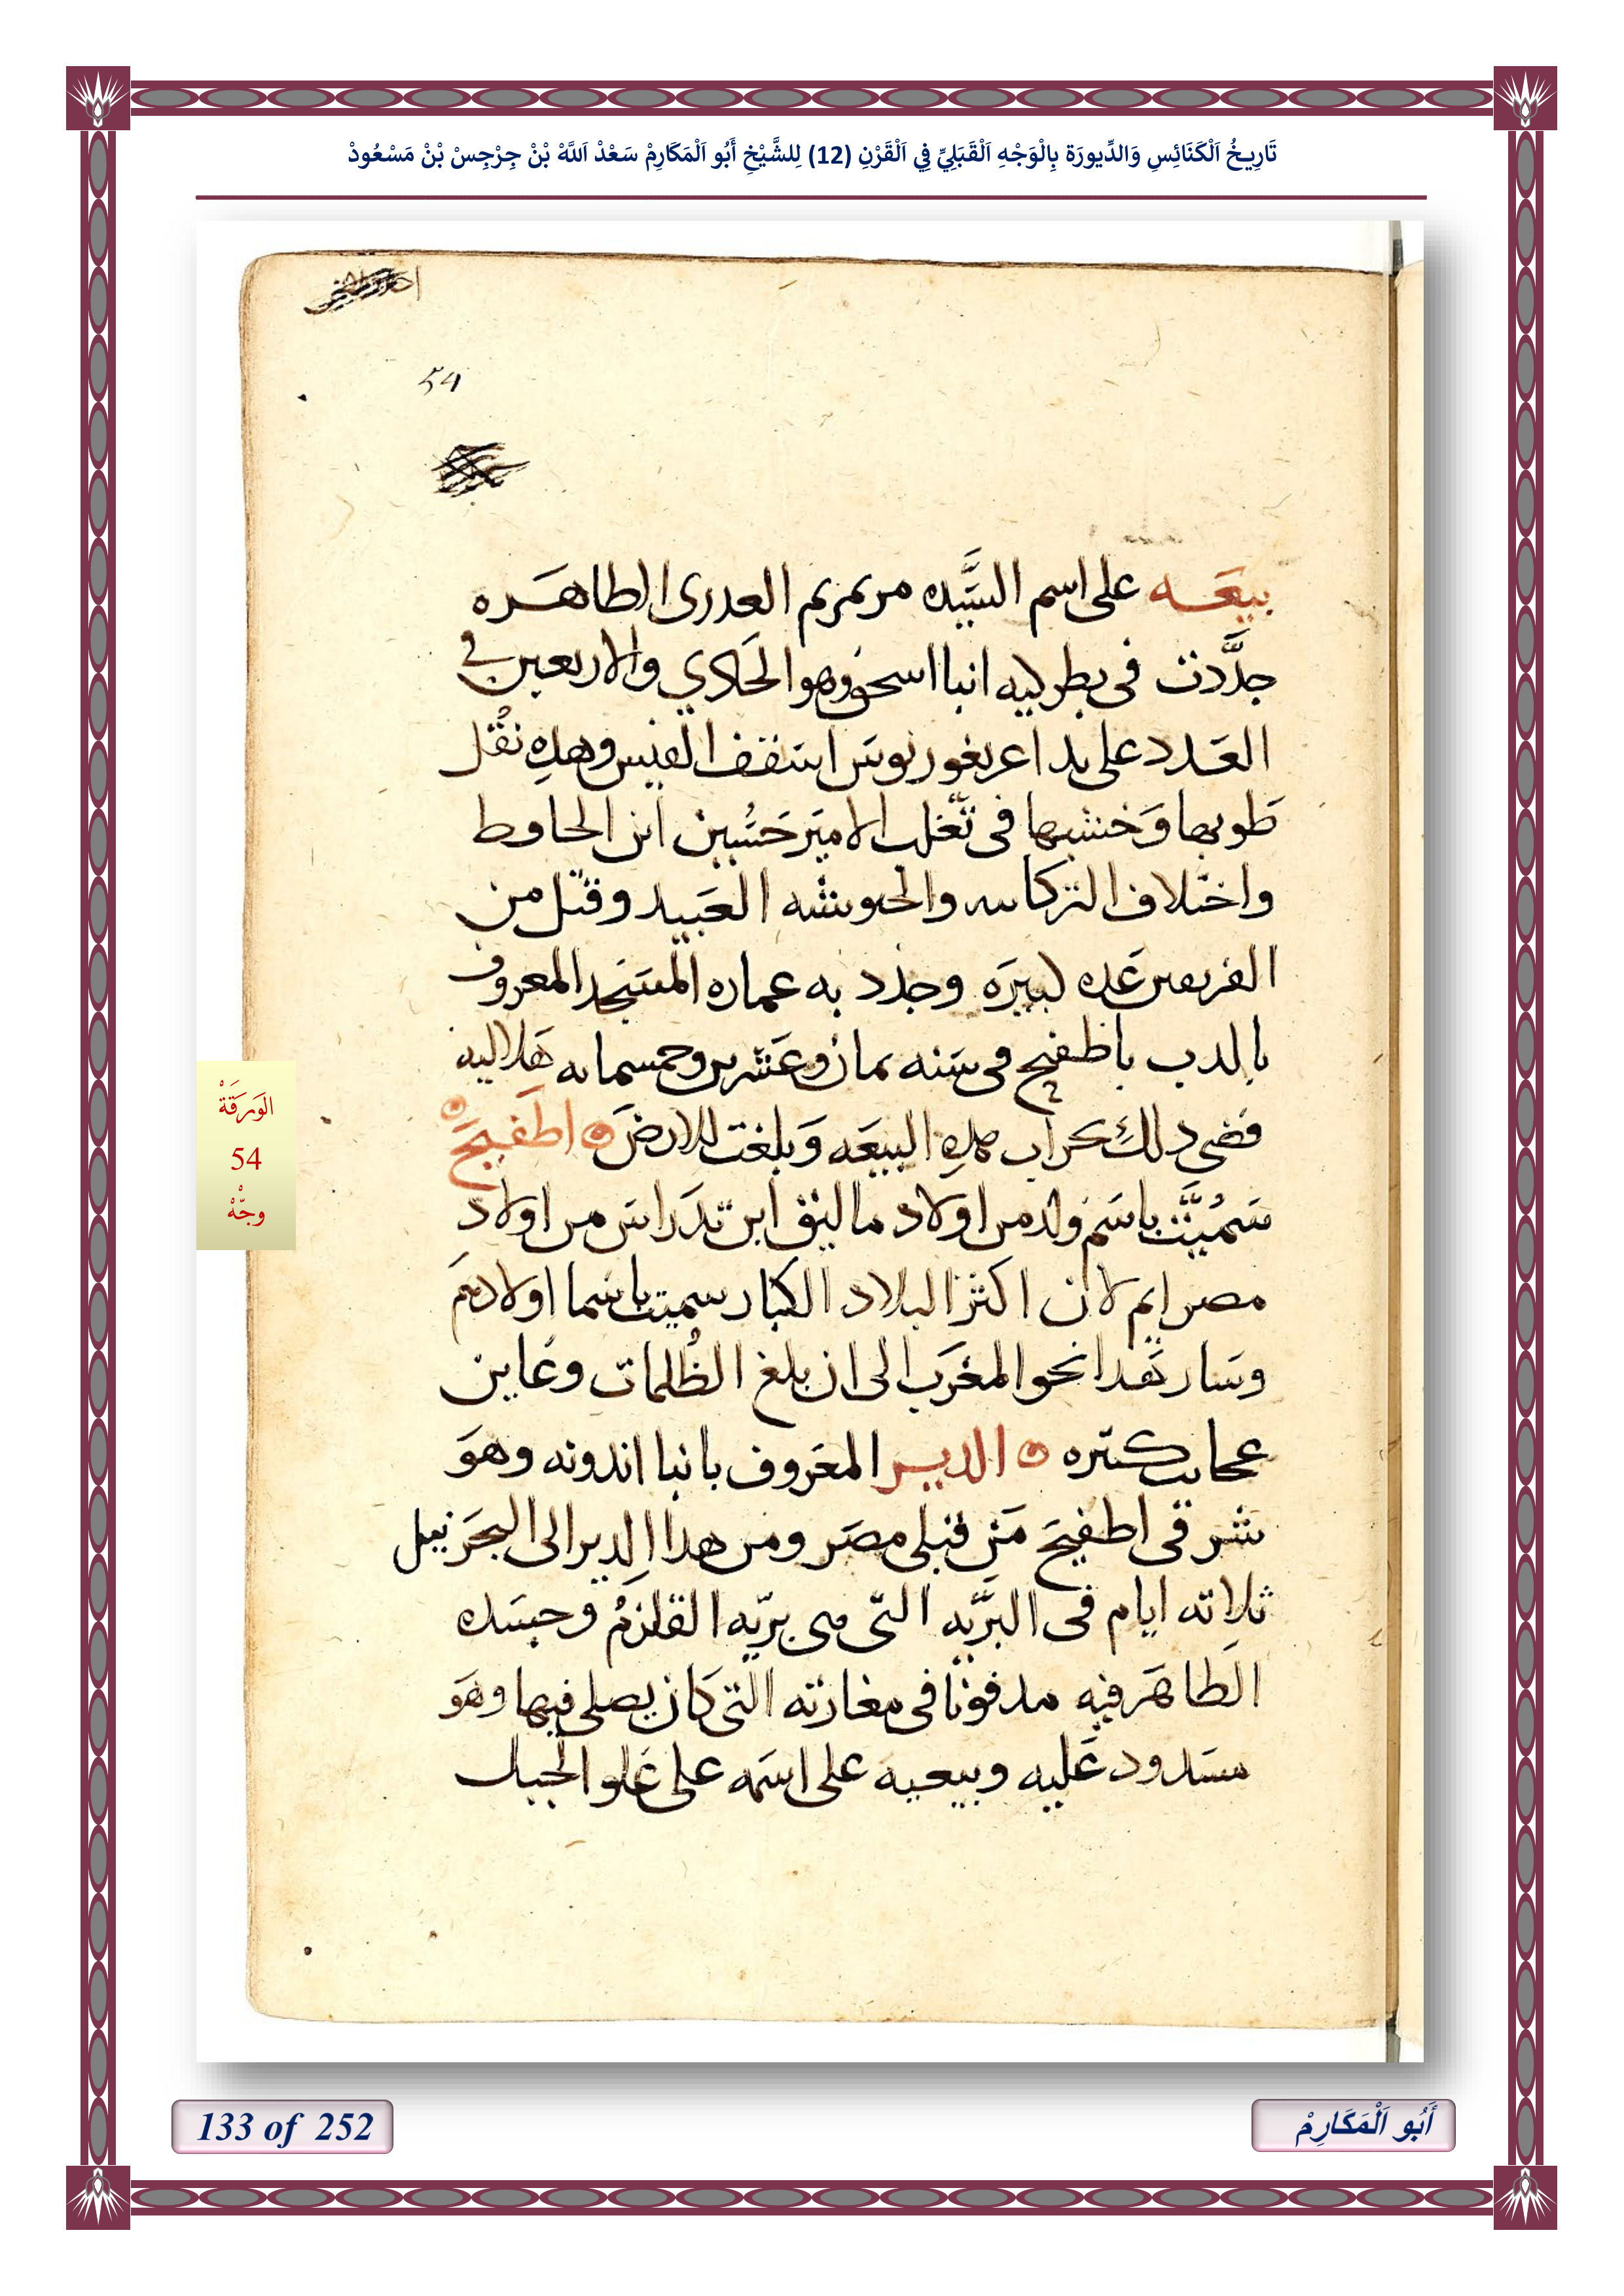 تَارِيخُ اَلْكَنَائِسِ وَالدِّيورَة بِالْوَجْهِ اَلْقَبَلِيِّ فِي اَلْقَرْنِ (12) لِلشَّيْخِ أَبُو اَلْمَكَارِمْ سَعْدْ اَللَّهْ بْنْ جِرْجِسْ بْنْ مَسْعُودْ
54
بيعَـه على اسم السَّيده مرتمريم العدرى الطاهَـره
جدَّدت فى بطركيه انبا اسحق وهو الحَادي والاربعين في
العَـدد على يد اغريغوريوس اسقف الفيس وهذِه نقُل
طوبها وَخشبها فى تغلب الاميَر حَسَين ابن الحافظ
واختلاف التركاسه والحيوشه العَبيد وقتل من
الفريقين عَده كبيرَه وجدد به عماره المسَجد المعروف
بالدب باطفيح فى سَنه ثمان وعَشرين وخمسمايه هَلاليه
فضى ذلكِ بخراب هذِه البيعَه وَبلغت للارضَ اطَفيحَ
سَمُيَّت باسَم ولد من اولاد ماليق ابن تدَراسَ من اولاد
مصرايم لان اكثر البلاد الكبار سميت باسما اولادهَم
وسَار نقدا نحو المغرَب الى ان بلغ الظُلمات وعَاين
عجايب كتيره الديـر المعَروف بانبا اندونه وهوَ
شرقى اطفيحَ مَن قبلى مصَر ومن هذا الدير الى البحَر نيل
ثلاثه ايام فى البَّريه التى هى بريّه القلزمُ وجسَده
الطاهَر فيه مدفونا فى مغارته التى كَان يصلى فيها وهوَ
مسَدود عَليه وبيعيه على اسَمه على عَلو الجبل
الوَرَقَةْ
54
وجّهْ
133 of 252
أَبُو اَلْمَكَارِمْ